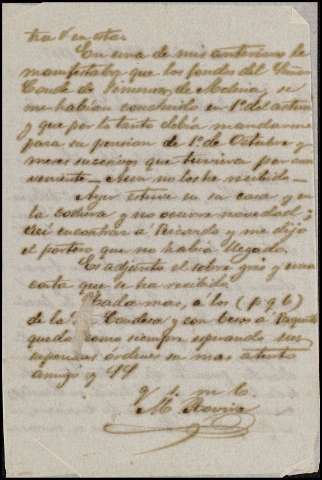 tra V en esta.
En una de mis anteriores le
manifestaba que los fondos del Señor
Conde de Ximenez de Molina, se
me habian concluido en 1º del actual
y que por lo tanto debia mandarme
para su pension de 1º de Octubre y
meses sucesivos que tuviera por con
veniente — Aun no los he recibido —
Ayer estuve en su casa y en
la cochera y no ocurre novedad;
alli encontré a Ricardo y me dijo
el portero que no habia llegado.
Es adjunto el sobre gris y una
carta que se ha recibido
Nada mas, a los (p q b)
de la Condesa y con besos á Paquito
queda como siempre esperando sus
superiores ordenes su mas atento
amigo y SS
q s m b.
M. Rovira